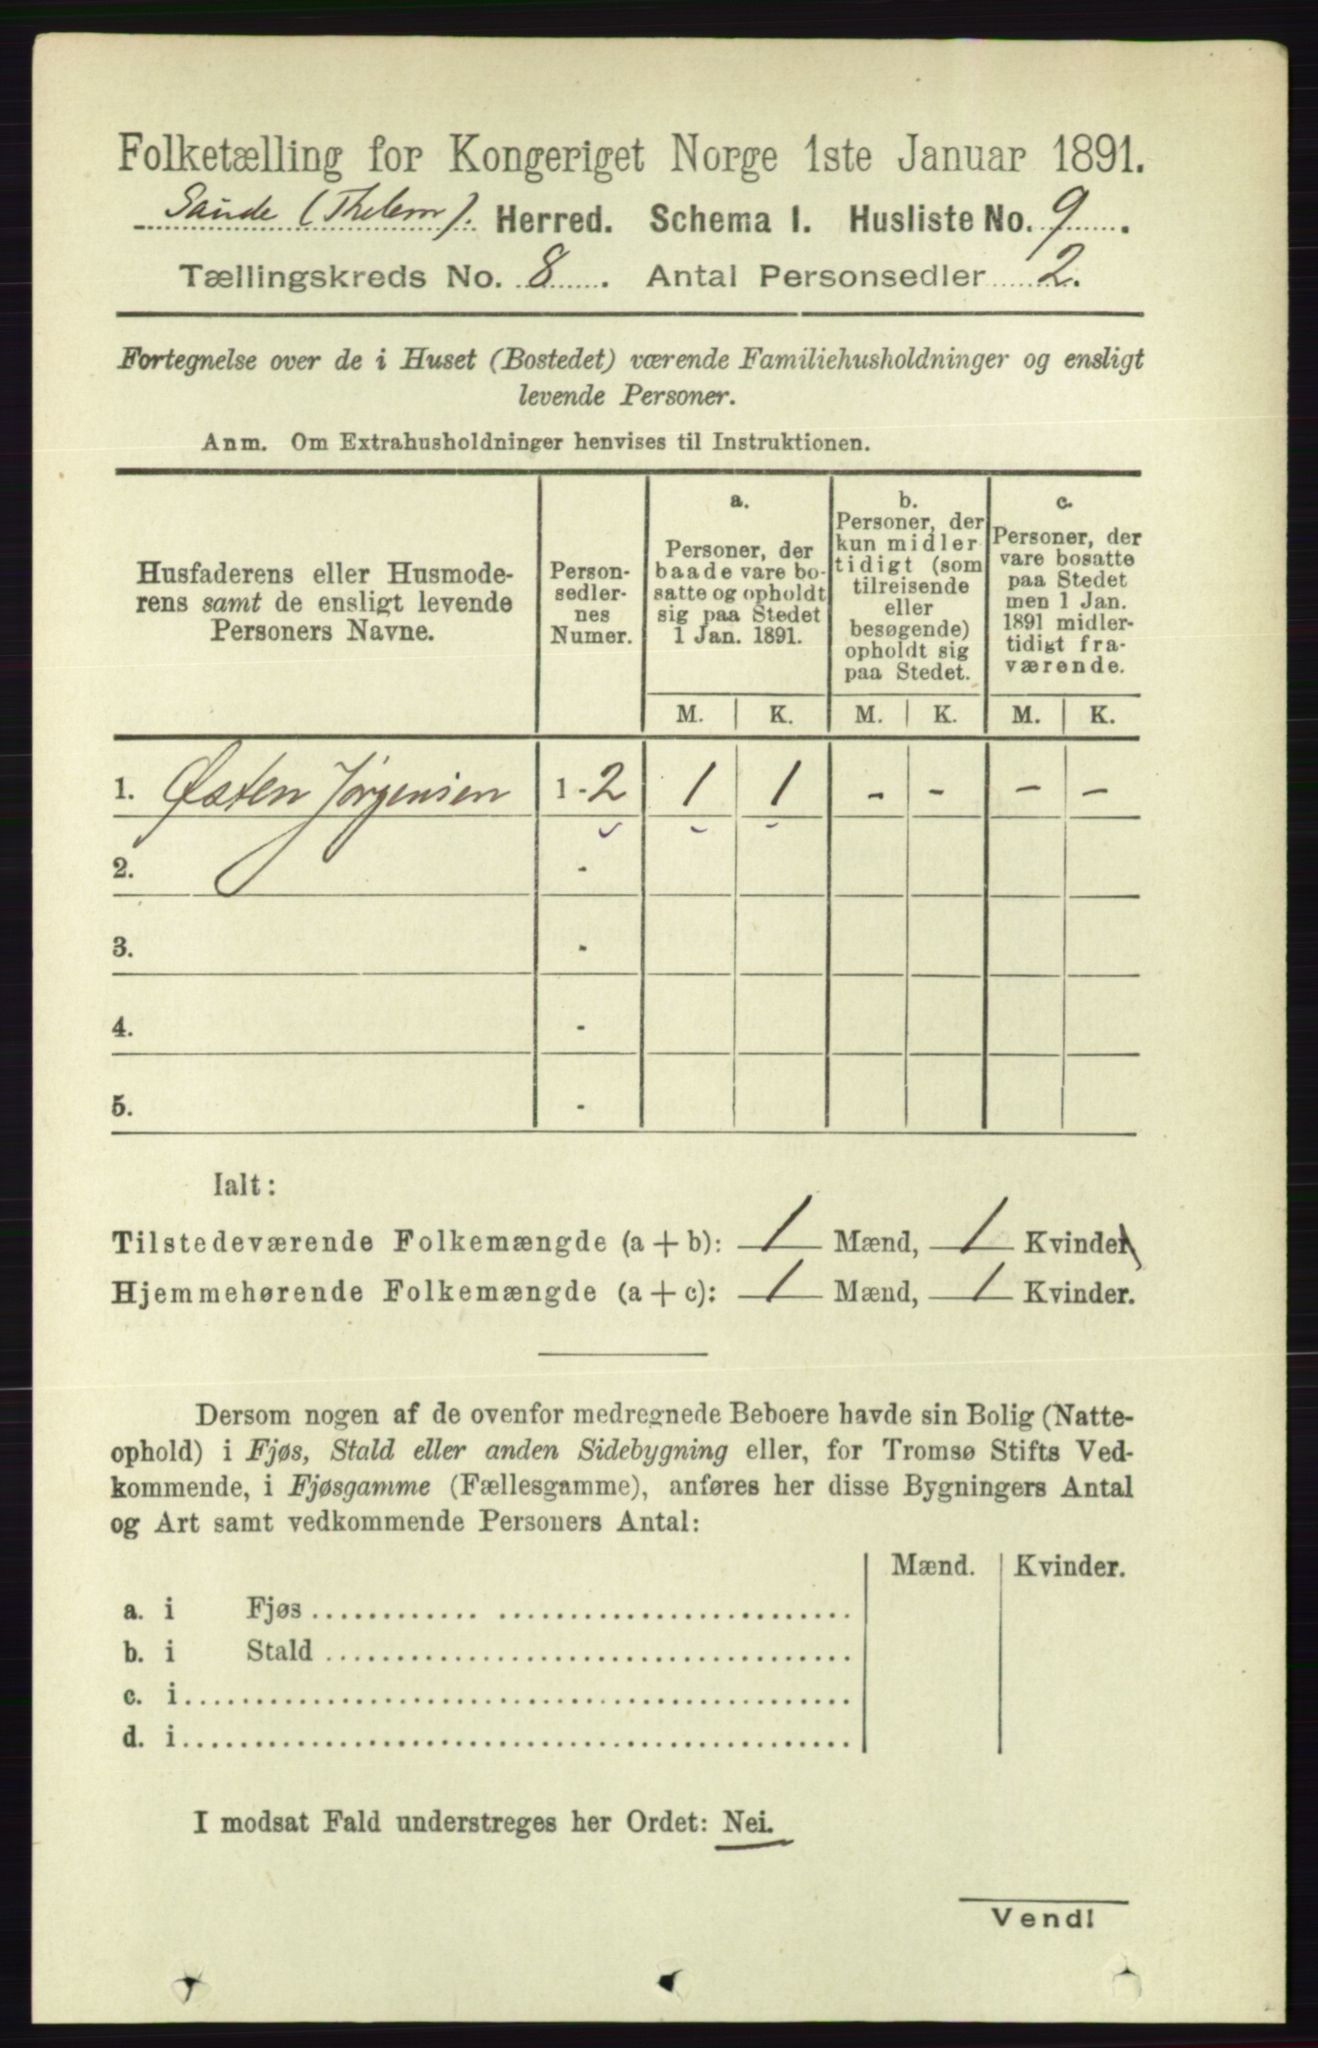 Folketælling for Kongeriget Norge 1ste Januar 1891.
Saude (Thelem). Herred. Schema I. Husliste No. 9.
Tællingskreds No. 8. Antal Personsedler 2.
Fortegnelse over de i Huset (Bostedet) værende Familiehusholdninger og ensligt
levende Personer.
Anm. Om Extrahusholdninger henvises til Instruktionen.
Husfaderens eller Husmode-
rens samt de ensligt levende
Personers Navne.
Person-
sedler-
nes
Numer.
a.
Personer, der
baade vare bo-
satte og opholdt
sig paa Stedet
1 Jan. 1891.
b.
Personer, der
kun midler
tidigt (som
tilreisende
eller
besøgende)
opholdt sig
paa Stedet.
c.
Personer, der
vare bosatte
paa Stedet
men 1 Jan.
1891 midler-
tidigt fra-
værende.
M. K. M. K. M. K.
1. Østen Jørgensen 1-2 1 1 - - - -
2. -
3. -
4. -
5. -
Ialt:
Tilstedeværende Folkemængde (a + b): 1 Mænd, 1 Kvinder
Hjemmehørende Folkemængde (a + c): 1 Mænd, 1 Kvinder.
Dersom nogen af de ovenfor medregnede Beboere havde sin Bolig (Natte-
ophold) i Fjøs, Stald eller anden Sidebygning eller, for Tromsø Stifts Ved-
kommende, i Fjøsgamme (Fællesgamme), anføres her disse Bygningers Antal
og Art samt vedkommende Personers Antal:
Mænd. Kvinder.
a. i Fjøs
b. i Stald
c. i
d. i
I modsat Fald understreges her Ordet: Nei.
Vend!